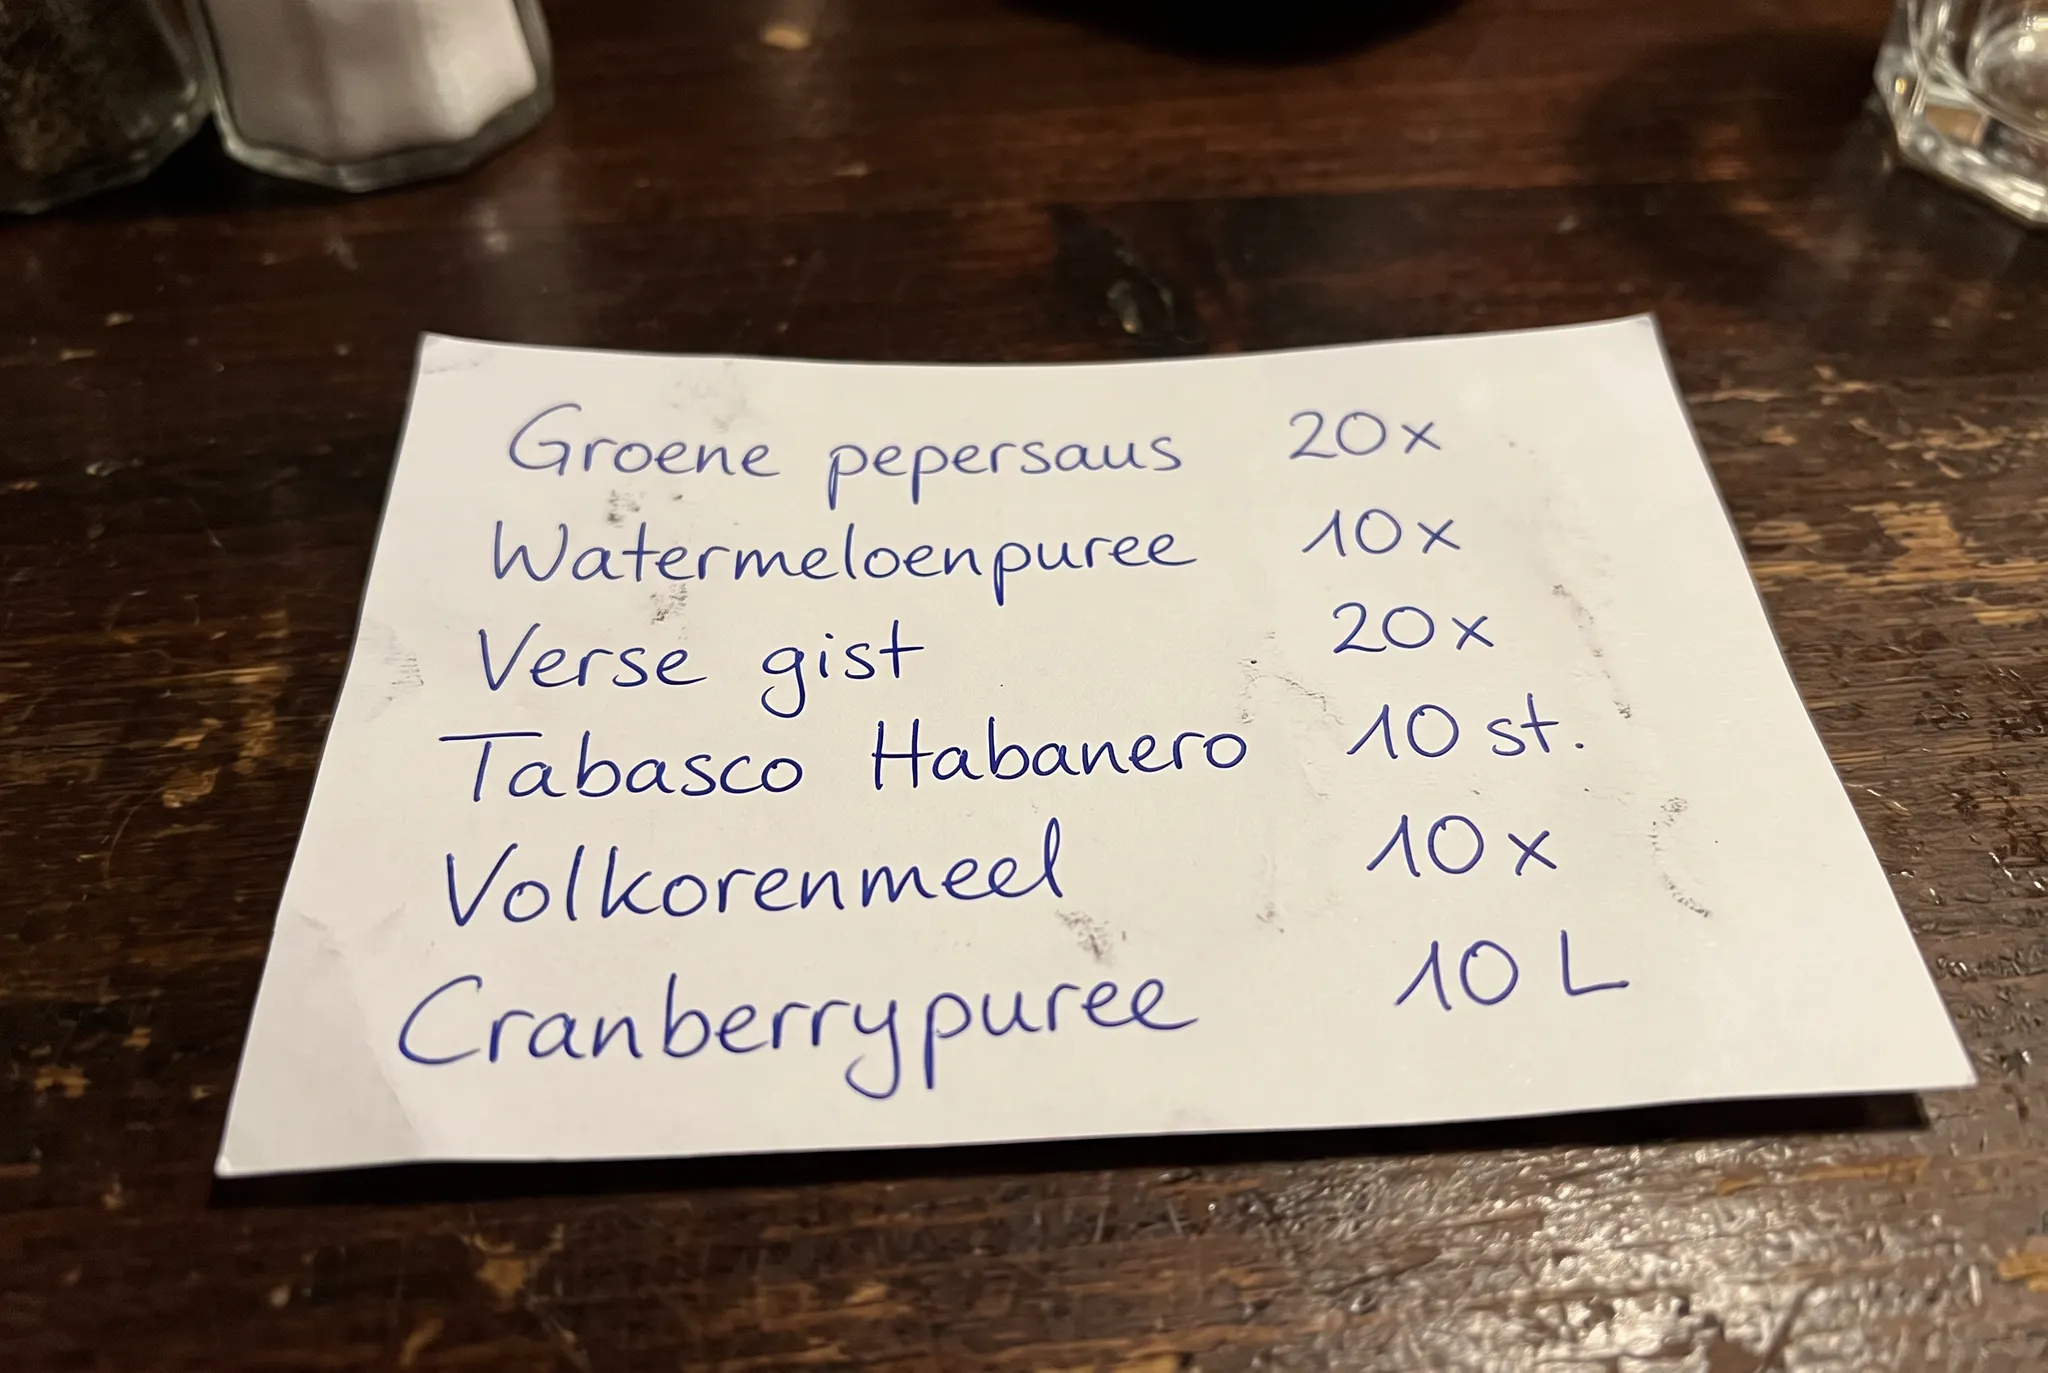 Groene pepersaus 20x
Watermeloenpuree 10x
Verse gist 20x
Tabasco Habanero 10 st.
Volkorenmeel 10x
Cranberrypuree 10 L